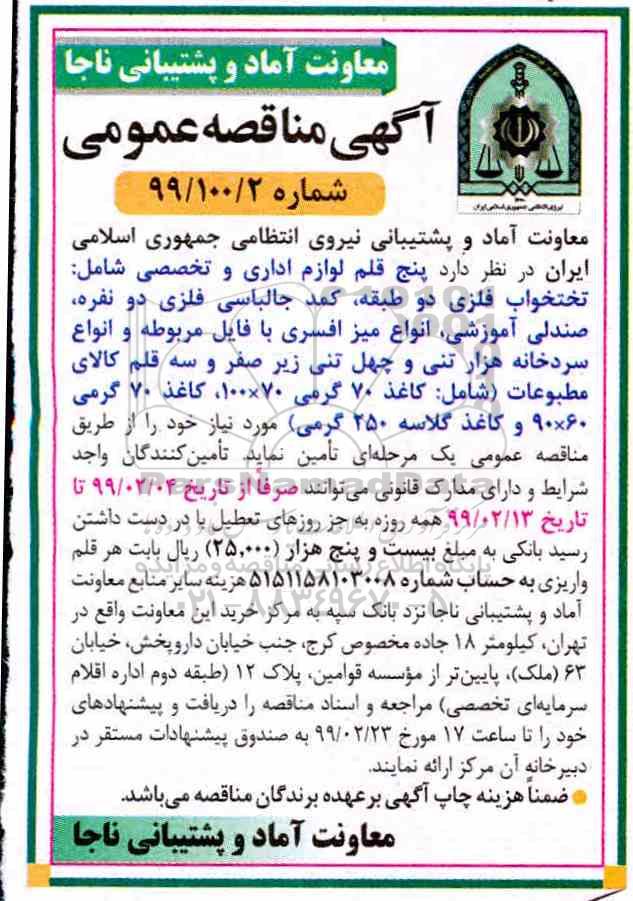 معاونت آماد و پشتیبانی ناجا
آگهی مناقصه عمومی
شماره ۹۹/۱۰۰/۲
نیروی انتظامی جمهوری اسلامی ایران
معاونت آماد و پشتیبانی نیروی انتظامی جمهوری اسلامی
ایران در نظر دارد پنج قلم لوازم اداری و تخصصی شامل:
تختخواب فلزی دو طبقه، کمد جالباسی فلزی دو نفره،
صندلی آموزشی، انواع میز افسری با فایل مربوطه و انواع
سردخانه هزار تنی و چهل تنی زیر صفر و سه قلم کالای
مطبوعات (شامل: کاغذ ۷۰ گرمی ۷۰×۱۰۰، کاغذ ۷۰ گرمی
۶۰×۹۰ و کاغذ گلاسه ۲۵۰ گرمی) مورد نیاز خود را از طریق
مناقصه عمومی یک مرحله‌ای تأمین نماید. تأمین‌کنندگان واجد
شرایط و دارای مدارک قانونی می‌توانند صرفاً از تاریخ ۹۹/۰۲/۰۴ تا
تاریخ ۹۹/۰۲/۱۳ همه روزه به جز روزهای تعطیل با در دست داشتن
رسید بانکی به مبلغ بیست و پنج هزار (۲۵,۰۰۰) ریال بابت هر قلم
واریزی به حساب شماره ۵۱۵۱۱۵۸۱۰۳۰۰۸ هزینه سایر منابع معاونت
آماد و پشتیبانی ناجا نزد بانک سپه به مرکز خرید این معاونت واقع در
تهران، کیلومتر ۱۸ جاده مخصوص کرج، جنب خیابان داروپخش، خیابان
۶۳ (ملک)، پایین‌تر از مؤسسه قوامین، پلاک ۱۲ (طبقه دوم اداره اقلام
سرمایه‌ای تخصصی) مراجعه و اسناد مناقصه را دریافت و پیشنهادهای
خود را تا ساعت ۱۷ مورخ ۹۹/۰۲/۲۳ به صندوق پیشنهادات مستقر در
دبیرخانه آن مرکز ارائه نمایند.
ضمناً هزینه چاپ آگهی بر عهده برندگان مناقصه می‌باشد.
معاونت آماد و پشتیبانی ناجا
ParsNamadData
پایگاه اطلاع رسانی مناقصه و مزایده